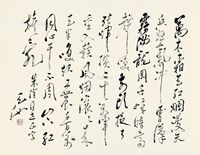 萬木霜天紅爛漫天
兵怒氣沖霄漢
霧滿龍岡千嶂暗
齊聲喚前頭捉了
張輝瓚二十萬軍重
入贛風煙滾滾來天
半喚起工農千百萬
同心干不周山下紅
旗亂